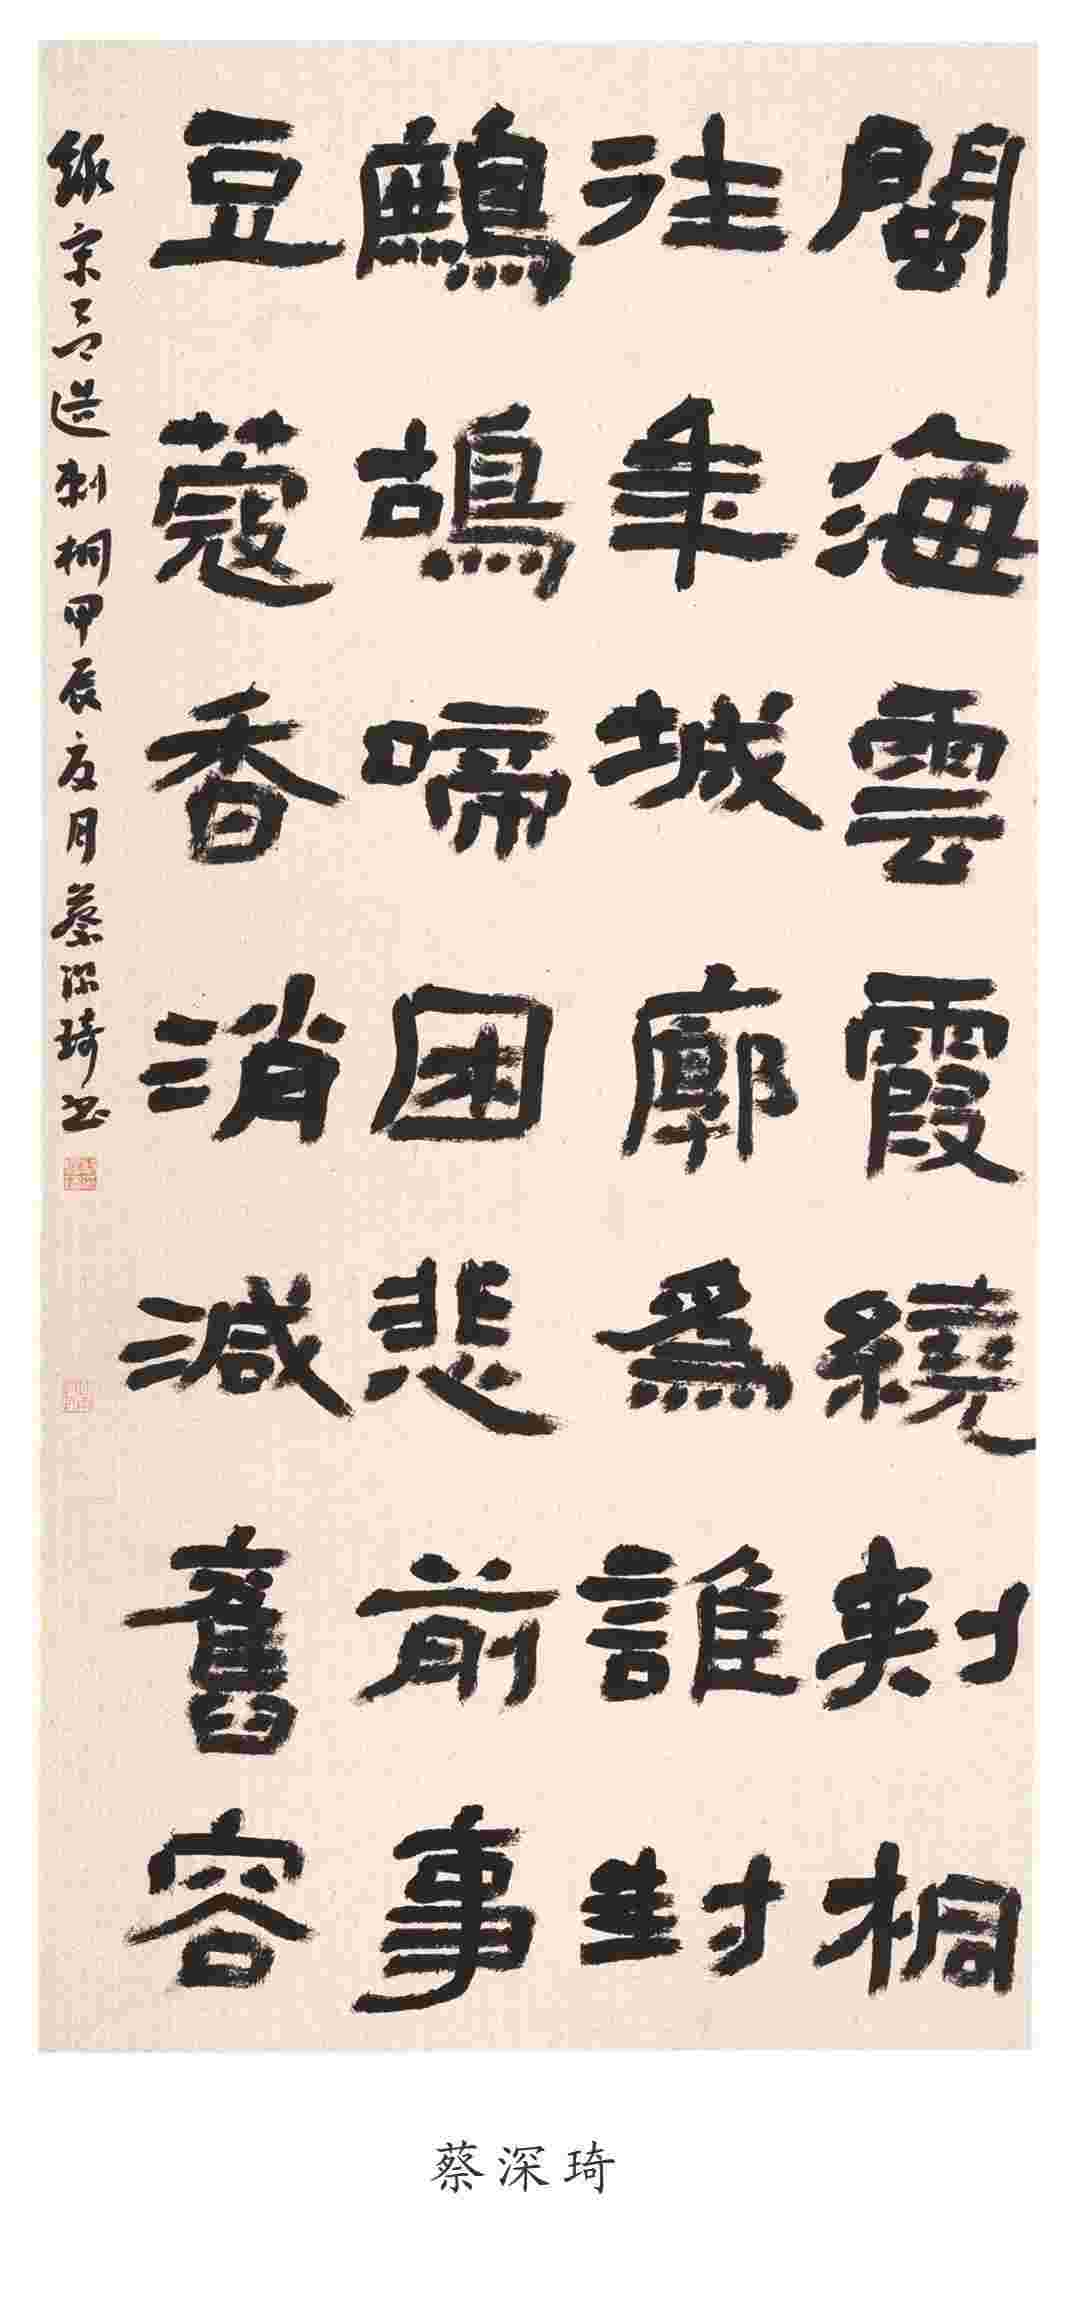 閩海雲霞繞刺桐
往年城廓為誰封
鷓鴣啼困悲前事
豆蔻香消減舊容
錄宋呂造刺桐甲辰夏月蔡深琦书
蔡深琦